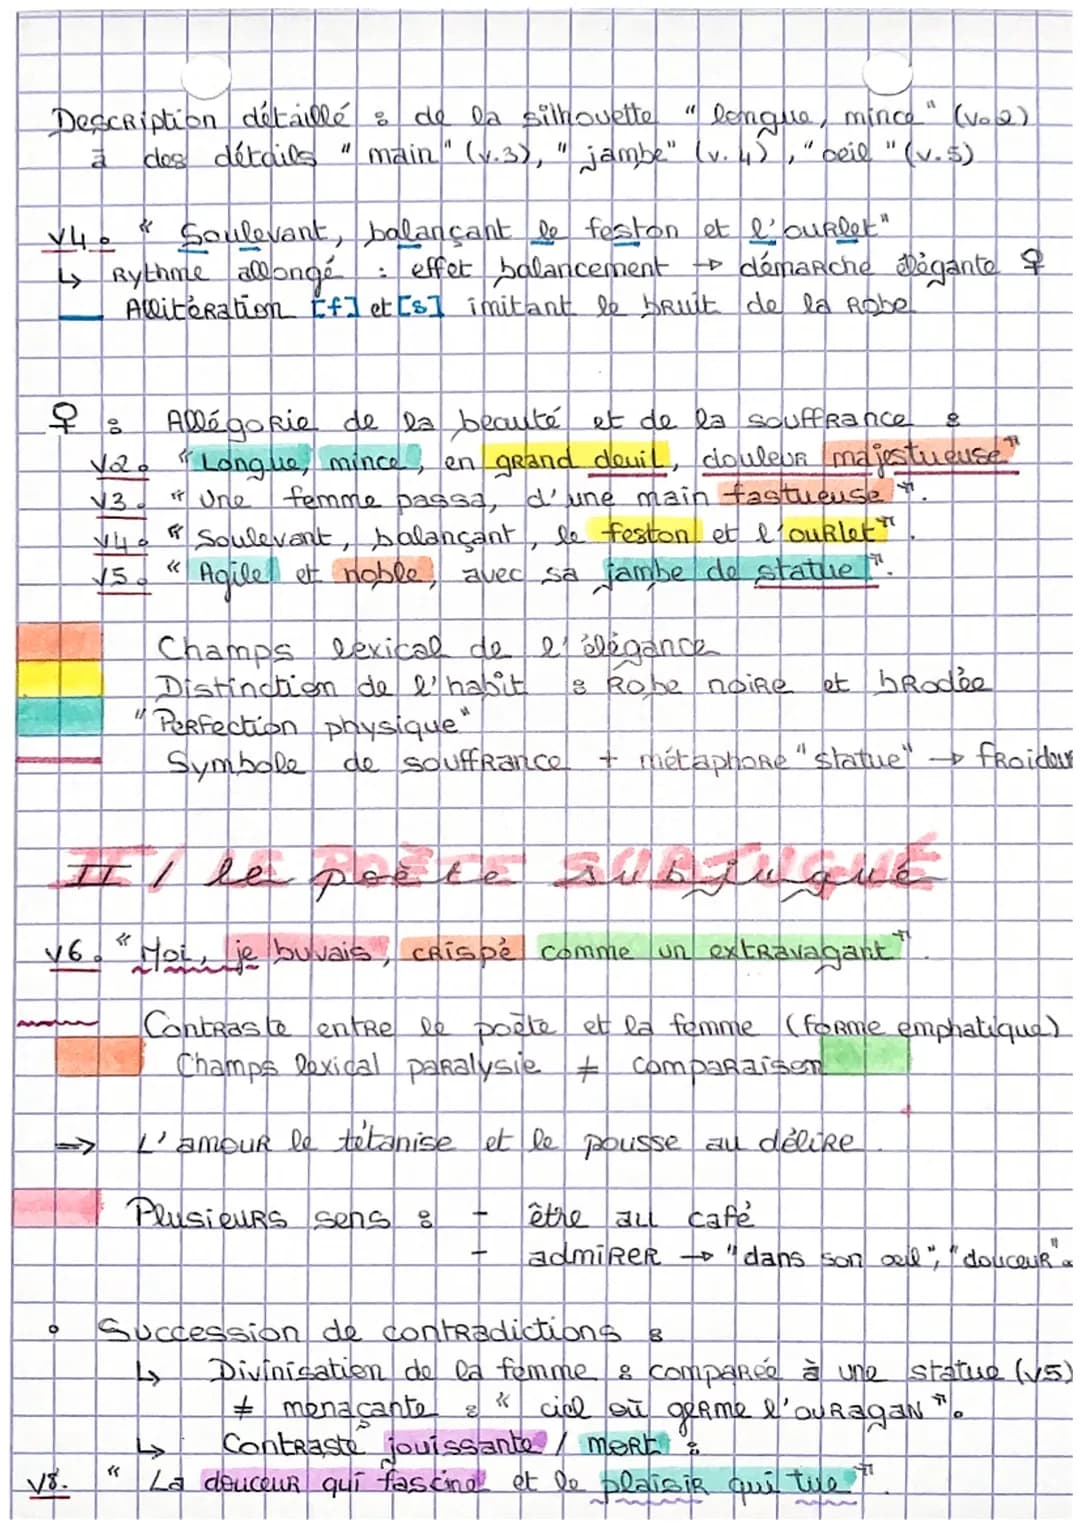 Description détaillé : de la silhouette "longue, mince" (v.2)
à des détails "main" (v.3), "jambe" (v.4), "oeil" (v.5)
V4. "Soulevant, balançant le feston et l'ourlet"
↳ Rythme allongé : effet balancement → démarche élégante ♀
Allitération [f] et [s] imitant le bruit de la robe
♀ : Allégorie de la beauté et de la souffrance :
V2. "Longue, mince, en grand deuil, douleur majestueuse"
V3. "Une femme passa, d'une main fastueuse".
V4. "Soulevant, balançant, le feston et l'ourlet".
V5. "Agile et noble, avec sa jambe de statue".
Champs lexical de l'élégance
Distinction de l'habit : Robe noire et brodée
"Perfection physique"
Symbole de souffrance + métaphore "statue" → froideur
II / le poète subjugué
V6. "Moi, je buvais, crispé comme un extravagant".
Contraste entre le poète et la femme (forme emphatique)
Champs lexical paralysie ≠ comparaison
=> L'amour le tétanise et le pousse au délire.
Plusieurs sens : - être au café
- admirer → "dans son oeil", "douceur".
• Succession de contradictions :
↳ Divinisation de la femme : comparée à une statue (v5)
≠ menaçante : "ciel où germe l'ouragan".
↳ Contraste jouissante / mort :
V8. "La douceur qui fascine et le plaisir qui tue".